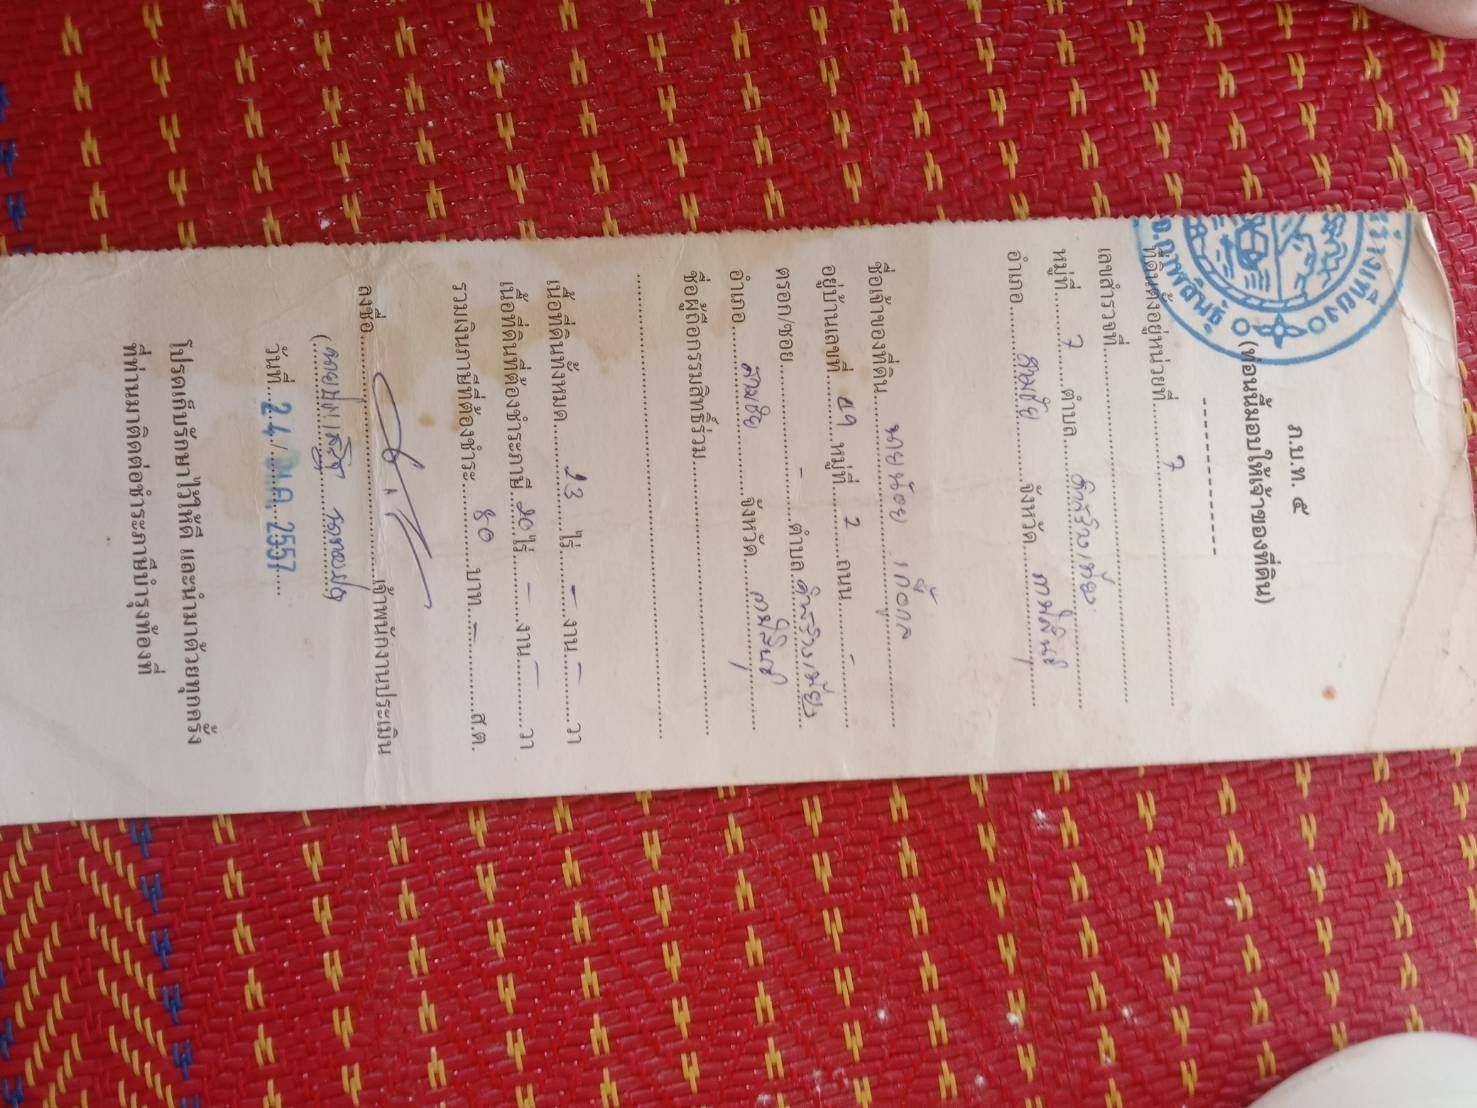 ภ.บ.ท. ๕
(ท่อนนี้มอบให้เจ้าของที่ดิน)
ที่ดินตั้งอยู่หน่วยที่ 7
เลขสำรวจที่
หมู่ที่ 7 ตำบล สำราญใต้
อำเภอ สามชัย จังหวัด กาฬสินธุ์
ชื่อเจ้าของที่ดิน นายน้อย
อยู่บ้านเลขที่ หมู่ที่ 2 ถนน -
ตรอก/ซอย - ตำบล
อำเภอ สามชัย จังหวัด กาฬสินธุ์
ชื่อผู้ถือกรรมสิทธิ์ร่วม
เนื้อที่ดินทั้งหมด 13 ไร่ - งาน - วา
เนื้อที่ดินที่ต้องชำระภาษี ไร่ - งาน - วา
รวมเงินภาษีที่ต้องชำระ บาท - ส.ต.
ลงชื่อ เจ้าพนักงานประเมิน
วันที่ 24 / 2557
โปรดเก็บรักษาไว้ให้ดี และนำมาด้วยทุกครั้ง
ที่ท่านมาติดต่อชำระภาษีบำรุงท้องที่